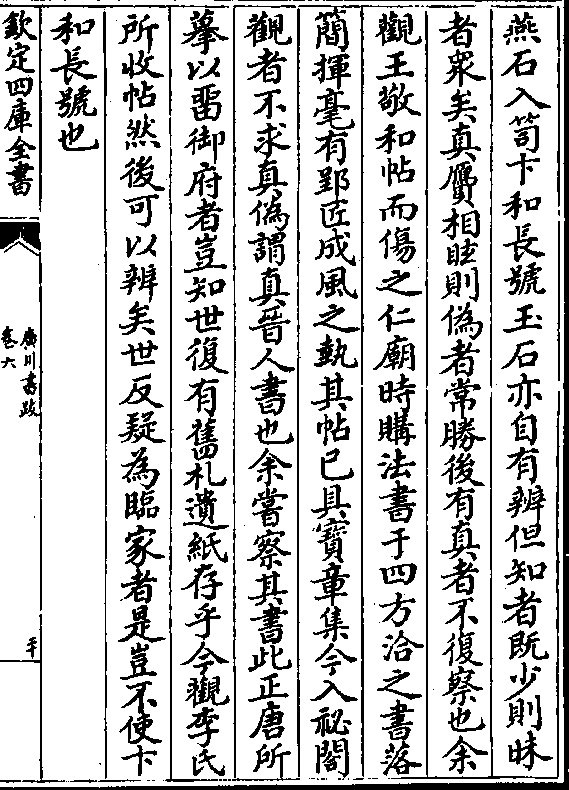 燕石入笥卞和長號玉石亦自有辨但知者既少則昧
者衆矣真贗相眩則偽者常勝後有真者不復察也余
觀王敬和帖而傷之仁廟時購法書于四方洽之書落
簡揮毫有郢匠成風之埶其帖已具寶章集今入祕閣
觀者不求真偽謂真晉人書也余嘗察其書此正唐所
摹以畱御府者豈知世復有舊札遺紙存乎今觀李氏
所收帖然後可以辨矣世反疑為臨家者是豈不使卞
和長號也
欽定四庫全書
廣川書跋
卷六